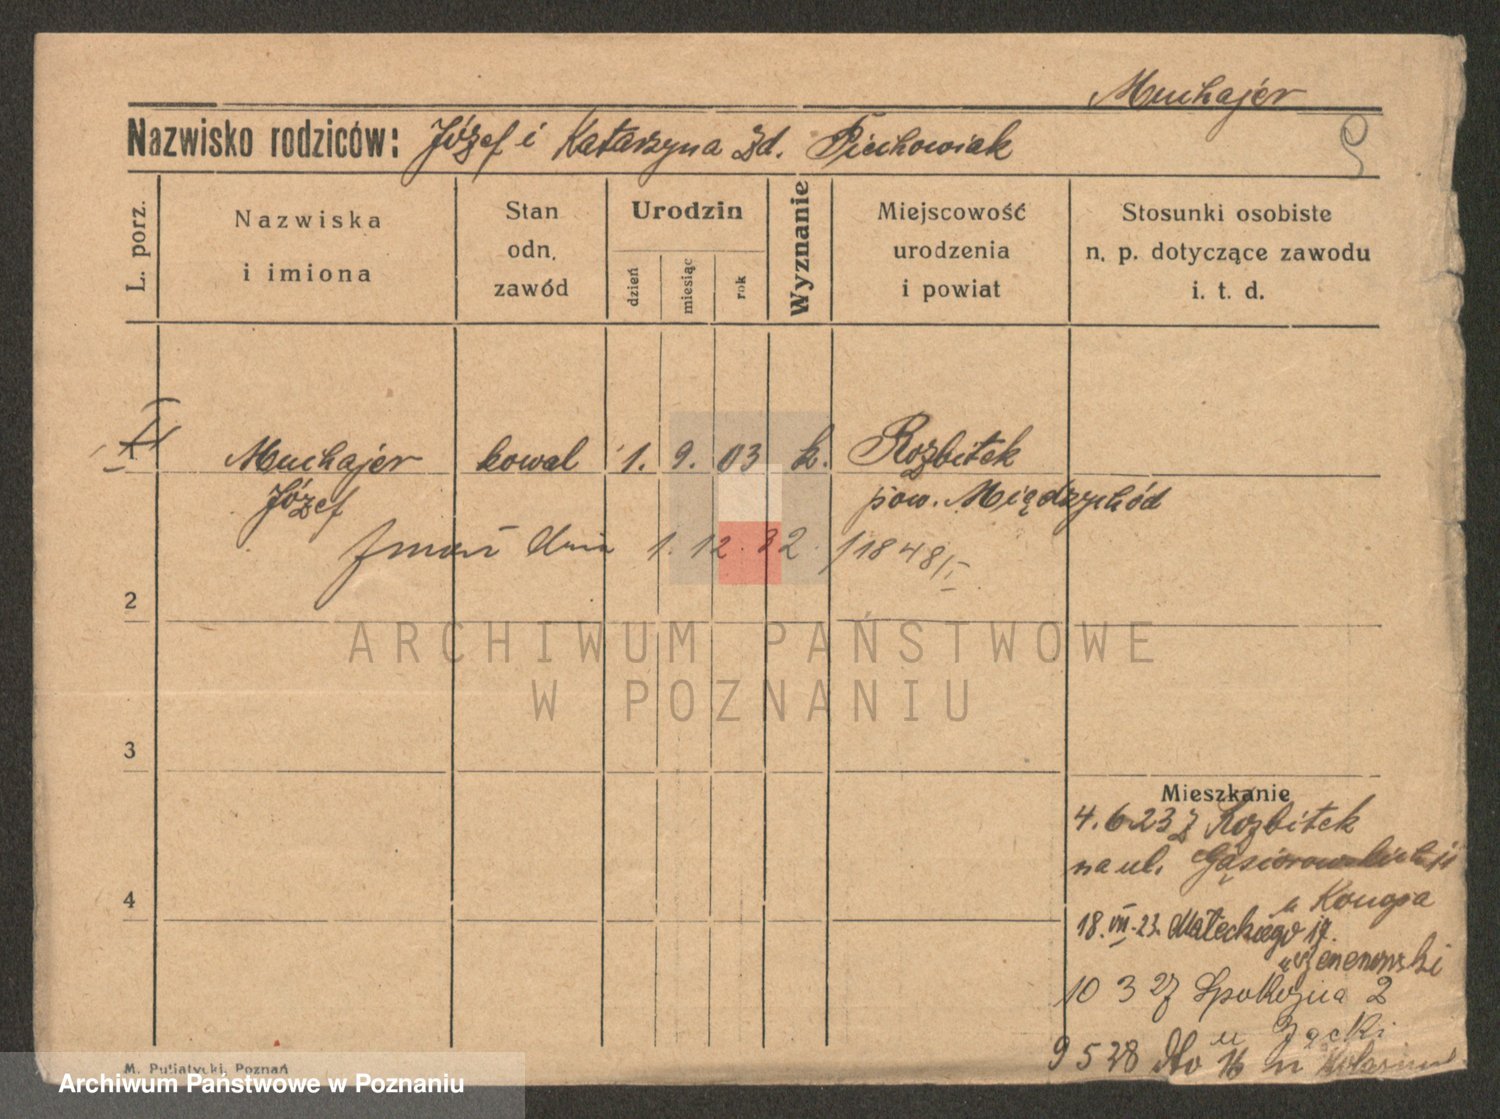 Muchajer
Nazwisko rodziców: Józef i Katarzyna zd. Piechowiak
L. porz.
Nazwiska
i imiona
Stan
odn.
zawód
Urodzin
dzień
miesiąc
rok
Wyznanie
Miejscowość
urodzenia
i powiat
Stosunki osobiste
n. p. dotyczące zawodu
i. t. d.
Muchajer kowal 1. 9. 03 k. Rozbitek
Józef pow. Międzychód
zmarł dnia 1. 12. 82. /1848/I
2
ARCHIWUM PAŃSTWOWE
W POZNANIU
3
Mieszkanie
4.6.23 z Rozbitek
na ul. Gąsiorowskich
4
u
18.VII.23. Małeckiego 17.
u
10 3 27 Spokojna 2
u Żącki
9 5 28 16
M. Putiatycki, Poznań
Archiwum Państwowe w Poznaniu